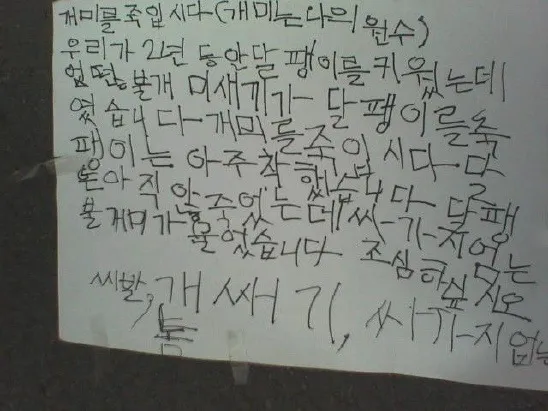 개미를 죽입시다 (개미는 나의 원수)
우리가 2년 동안 달팽이를 키웠는데
불개미새기가 달팽이를 죽
였습니다 개미를 죽입시다. 달
팽이는 아주 착했습니다 달팽
아직 안죽었는데 싸가지없는
불개미가 물었습니다 조심하싶시오
씨빨, 개쌔기, 싸가지 없는
놈